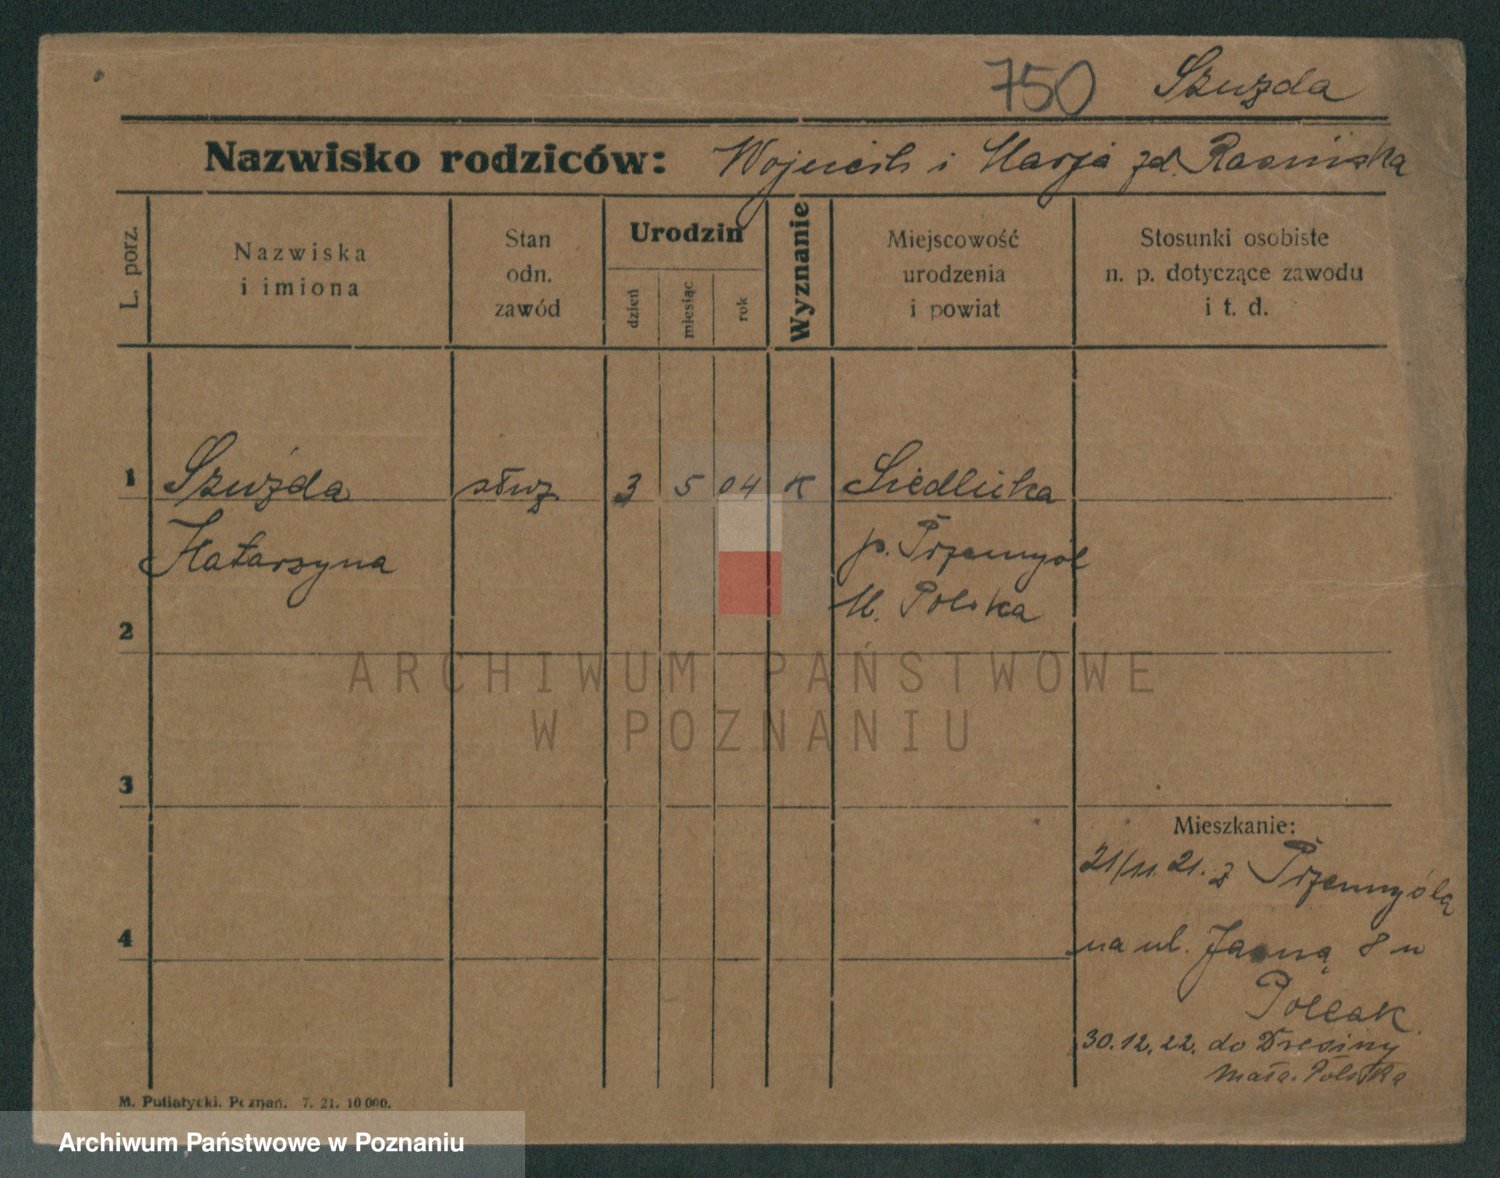 750 Szuzda
Nazwisko rodziców: Wojciech i Marja zd.
L. porz.
Nazwiska
i imiona
Stan
odn.
zawód
Urodzin
dzień
miesiąc
rok
Wyznanie
Miejscowość
urodzenia
i powiat
Stosunki osobiste
n. p. dotyczące zawodu
i t. d.
1 Szużda służ 3 5 04 K Siedliska
Katarzyna p. Przemyśl
M. Polska
2
ARCHIWUM PAŃSTWOWE
W POZNANIU
3
Mieszkanie:
21/11.21. z Przemyśla
4 na ul. Jasną 8 u
Pollak
30.12.22. do
Mała. Polska
M. Putiatycki. Poznań. 7. 21. 10 000.
Archiwum Państwowe w Poznaniu